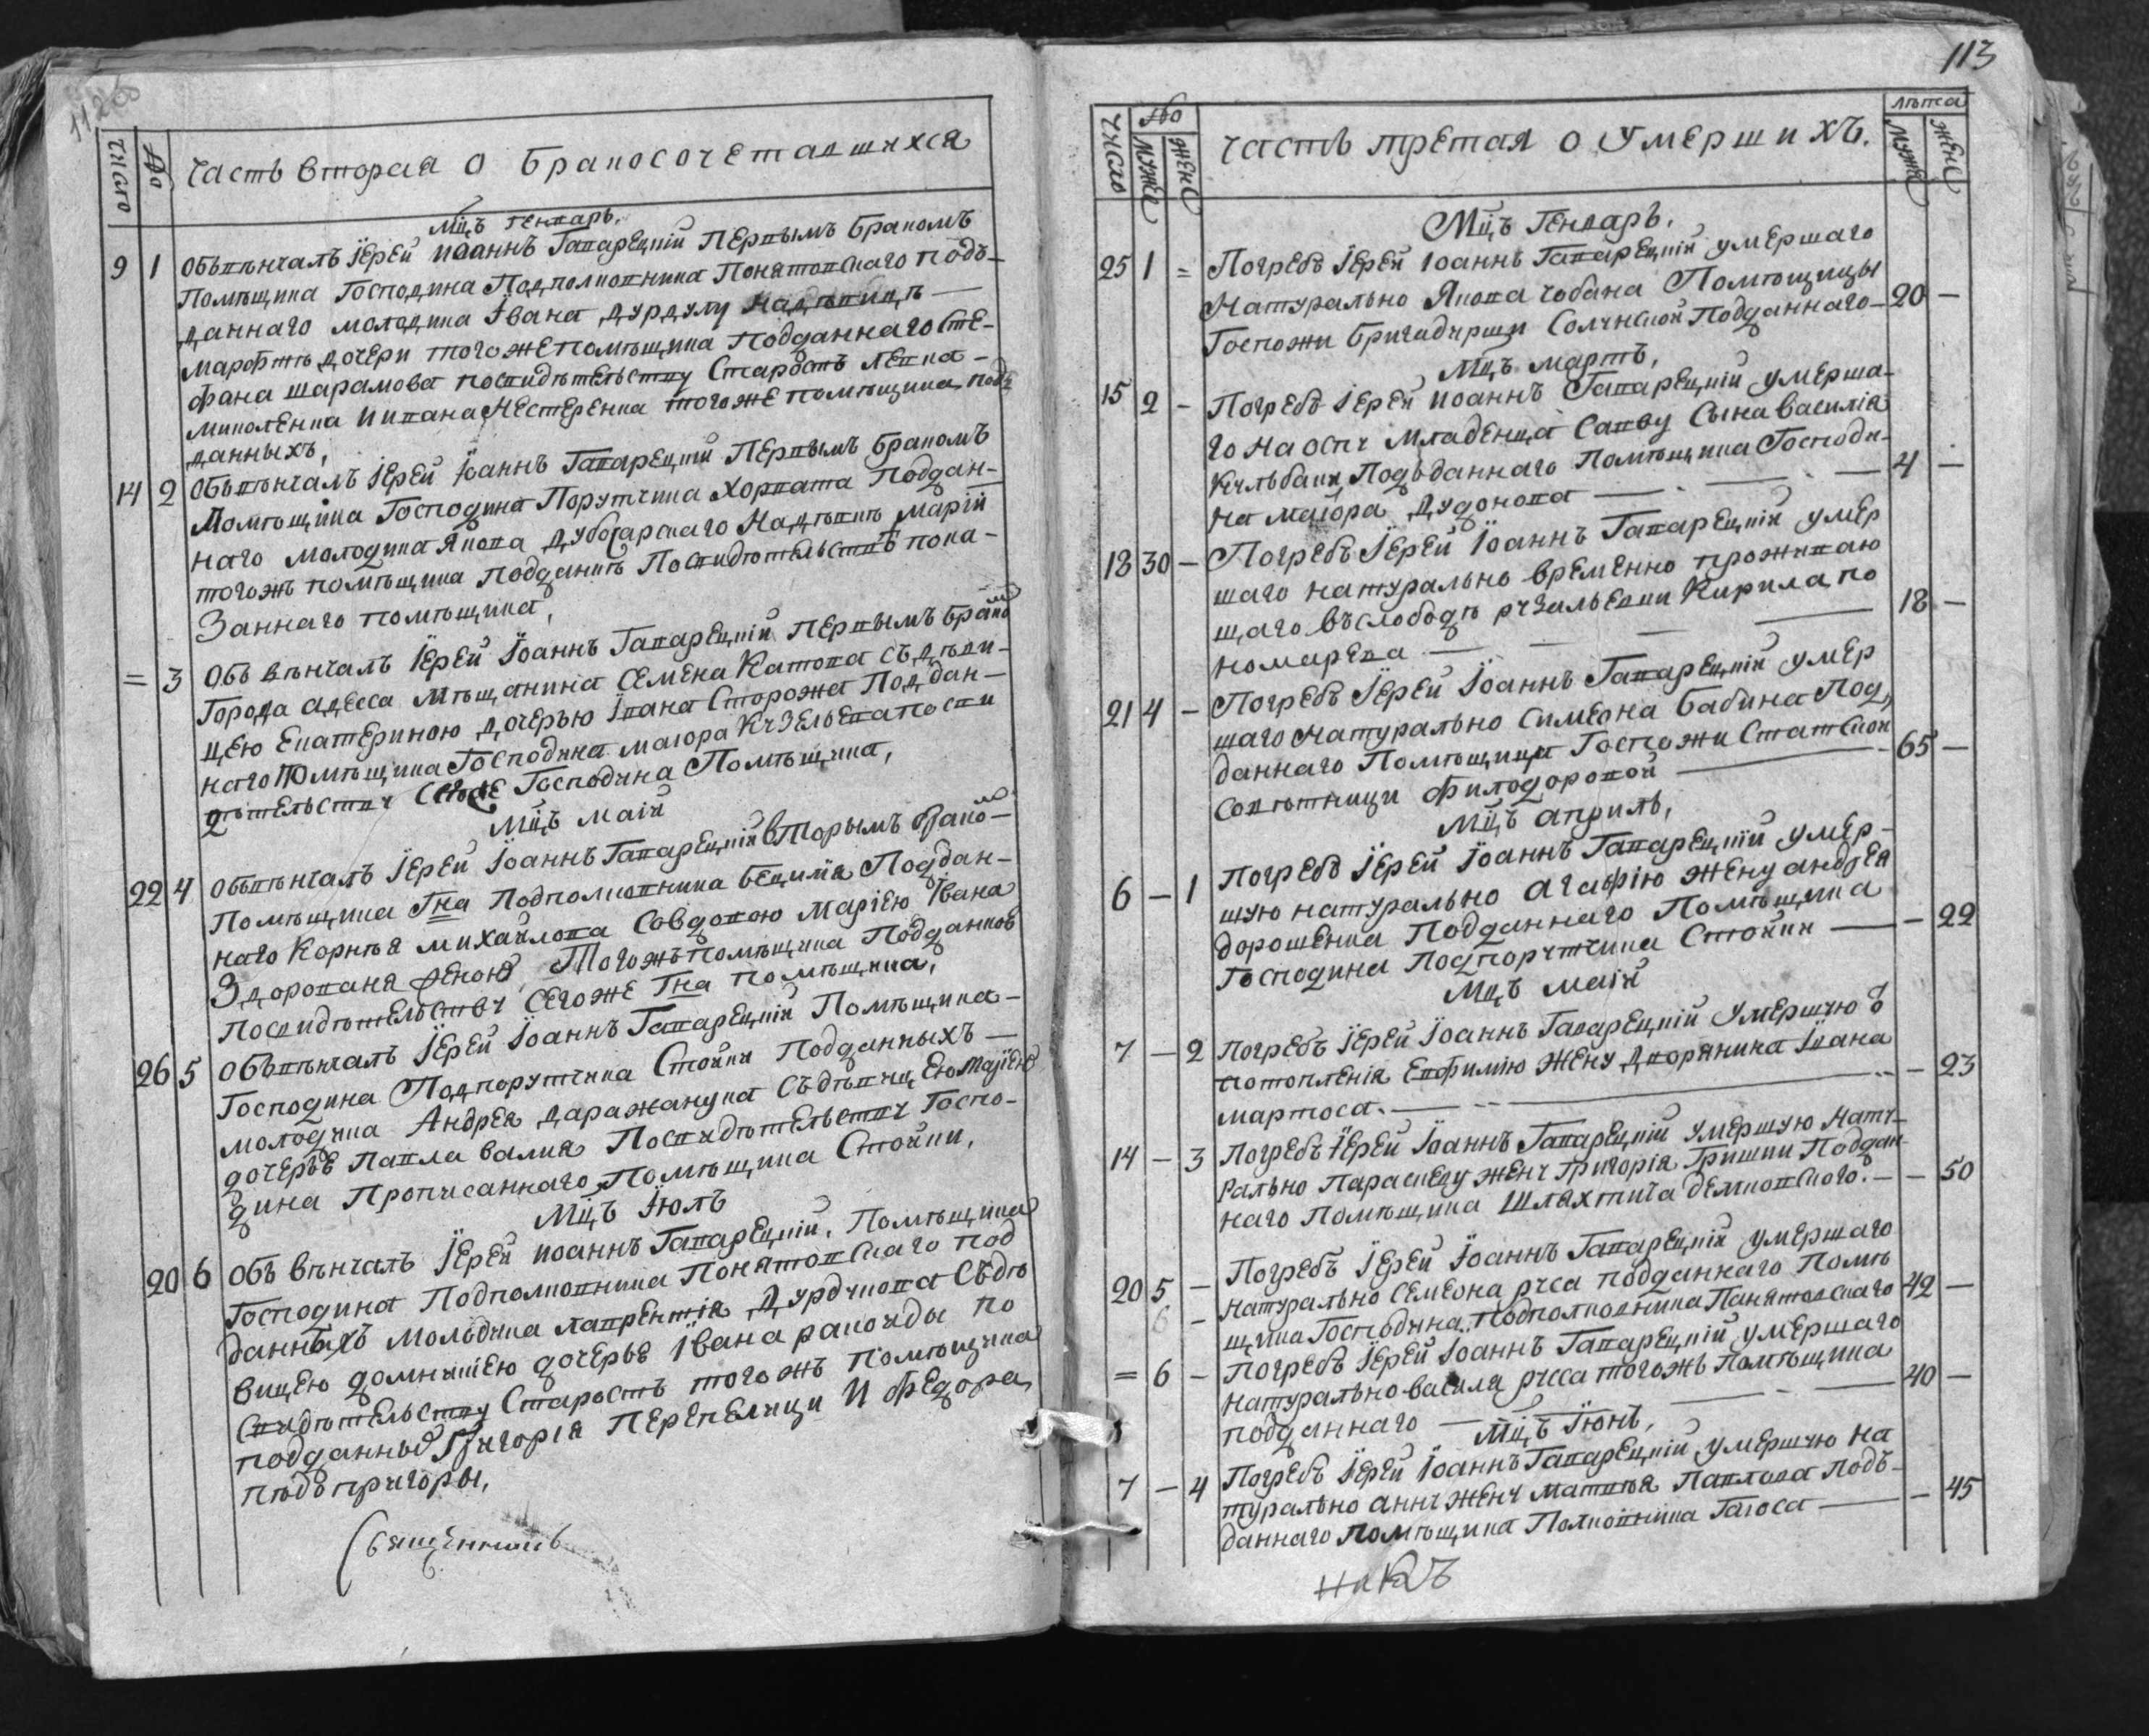 112 об
число
№
часть вторая о бракосочетавшихся
Мцъ генварь.
9 1 Обвѣнчалъ іерей иоаннъ Гапарецкій первымъ бракомъ
помѣщика Господина Подполковника Понятовскаго подъ-
даннаго молодика івана дурдулу на дѣвицѣ —
марфѣ дочери того же помѣщика подданнаго Сте-
фана шарамова по свидѣтельству Старостъ лепка-
миколенка и ивана Нестеренка того же помѣщика подъ
данныхъ,
14 2 Обвѣнчалъ іерей іоаннъ Гапарецкій первымъ бракомъ
Помѣщика Господина Порутчика Хорвата Поддан-
наго молодика Якова дубосарскаго На дѣвкѣ марій
того жъ помѣщика подданнѣ По свидѣтельствѣ пока-
заннаго помѣщика,
= 3 Объ вѣнчалъ іерей іоаннъ Гапарецкій первымъ брако
Города адесса мѣщанина Семена Катова съ дѣви-
цею Екатериною дочерью івана Сторожа Поддан-
наго Помѣщика Господина маіора Кизельева по сви
дѣтельстви Господина Помѣщика,
Мцъ маій
22 4 Обвѣнчалъ іерей іоаннъ Гапарецкій вторымъ брако-
Помѣщика Гна Подполковника Бецима Поддан-
наго Корнѣя михайлова Совдовою маріею івана
Здорованя Того жъ помѣщика Подданною
По свидѣтельстви Сего же Гна помѣщика,
26 5 Обвѣнчалъ іерей іоаннъ Гапарецкій Помѣщика-
Господина Подпорутчика Стойки подданныхъ —
молодика Андрея даражанука Съ дѣвицею маріею
дочерью Павла валия По свидѣтельстви Госпо-
дина Прописаннаго Помѣщика Стойки,
Мцъ іюль
20 6 Объ вѣнчалъ іерей иоаннъ Гапарецкій. Помѣщика
Господина Подполковника Понятовскаго под
данныхъ молодика лаврентія дурдукова Съ дѣ
вицею домникіею дочерью івана ракочды по
свидѣтельству Старостъ того жъ помѣщика
подданныхъ Григорія перепелици и федора
подъпригоры,
Священникъ
113
число
№
мужеска
женска
часть третая о умершихъ.
лѣта
мужеска
женска
Мцъ Генварь.
25 1 = Погребъ іерей іоаннъ Гапарецкій умершаго
натурально Якова чобана Помѣщицы
Госпожи бригадирши Солчиской Подданнаго — 20 —
Мцъ мартъ,
15 2 - Погребъ іерей иоаннъ Гапарецкій умерша-
го на оспи младенца Савву Сына василія
Кульбаки Подъданнаго Помѣщика Господи-
на маіора Дудонова — 4 —
18 30 - Погребъ іерей іоаннъ Гапарецкій умер
шаго натурально временно проживаю
щаго въ слободѣ ризальевки Кирила по
номарева — 18 —
21 4 - Погребъ іерей іоаннъ Гапарецкій умер
шаго натурально Симеона бабина Под,
даннаго Помѣщици Госпожи Статской
совѣтници филодоровой — 65 —
Мцъ априль,
6 - 1 Погребъ іерей іоаннъ Гапарецкій умер-
шую натурально агафію жену андрея
дорошенка Подданнаго Помѣщика
Господина Подпорутчика Стойки — 22
Мцъ маій
7 - 2 Погребъ іерей іоаннъ Гапарецкій умершую ѿ
потопленія Евфимію жену дворянина івана
мартоса. — 23
14 - 3 Погребъ іерей іоаннъ Гапарецкій умершую нату-
рально Параскеву жену григорія Гришки Поддан-
наго Помѣщика Шляхтича демковского. — 50
20 5 - Погребъ іерей іоаннъ Гапарецкій умершаго
6 - натурально Семеона руса подданнаго помѣ
щика Господина Подполковника Панятовскаго 42 —
= 6 - Погребъ іерей іоаннъ Гапарецкій умершаго
натурально василя русса того жъ помѣщика
подданнаго — 40 —
Мцъ іюнь,
7 - 4 Погребъ іерей іоаннъ Гапарецкій умершую на
турально анну жену матвѣя Павлова подъ-
даннаго помѣщика Полковника Гагоса — 45